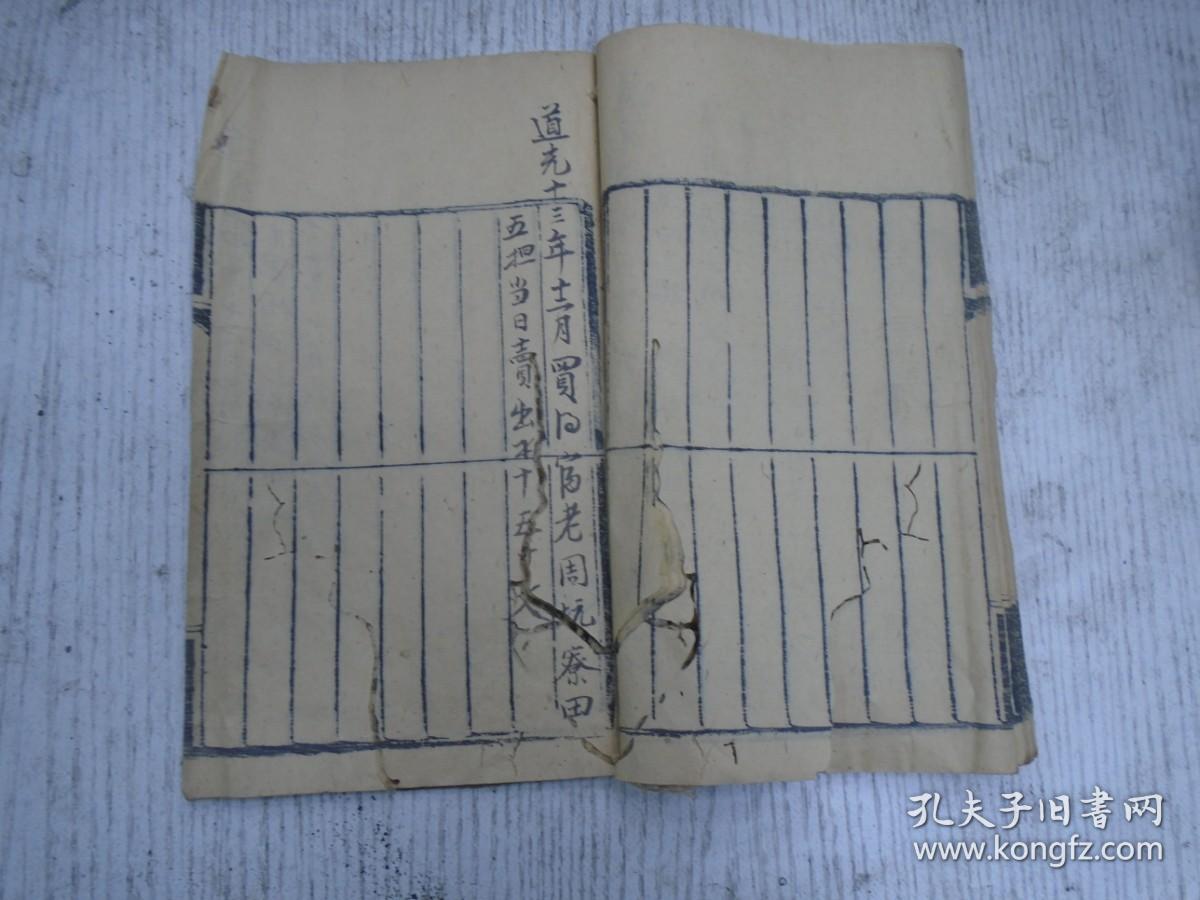 道光十三年十二月買得富老周坑寮田
五担当日賣出不十五千文
7
孔夫子旧書网
www.kongfz.com